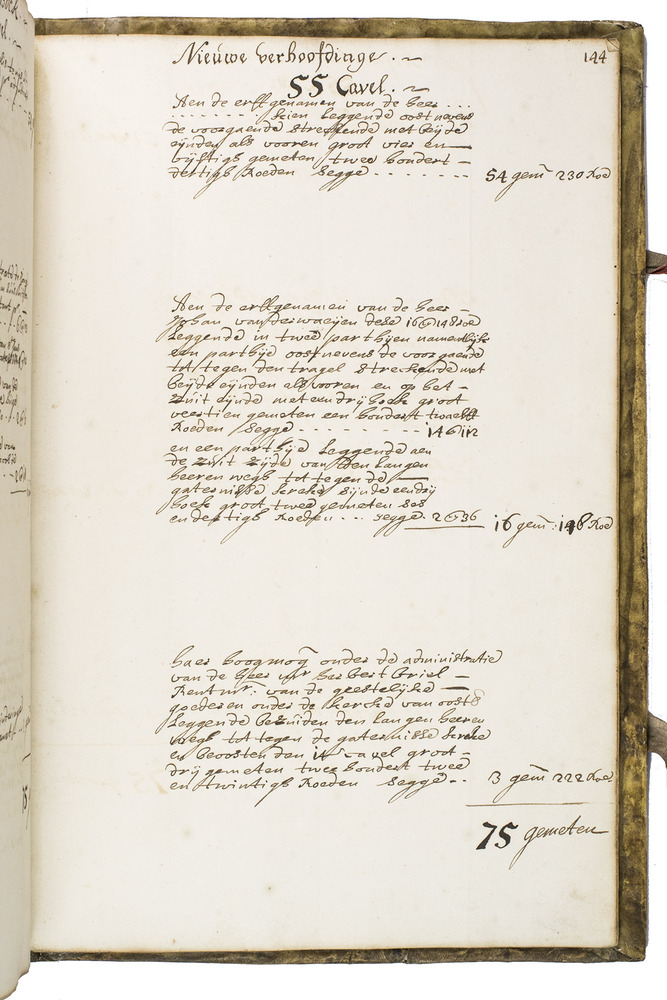 144
Nieuwe verhoofdinge. ~
55 Cavel. ~
Aen de erffgenamen van de heer ...
- - - - - - - leggende oost nevens
de voorgaende streckende met beyde
eynden als vooren groot vier en
vyftigh gemeten twee hondert
dertigh Roeden segge - - - - - - - - 54 gem 230 Roe
Aen de erffgenamen van de heer
Johan van der waeijen dese 16 G 148 Roe
Leggende in twee parthijen namentlijk
een parthije oost nevens de voorgaende
tot tegen den tragel streckende met
beyde eijnden als vooren en op het
zuit eijnde met een drij hoeck groot
veertien gemeten een hondert twaelff
Roeden segge - - - - - - - - 14 G 112
en een parthije Leggende aen
de zuit zijde van den Langen
heeren wegh tot tegen de
gaternisse kercke sijnde een drij
hoeck groot twee gemeten ses
en dertigh Roeden - - - segge. 2 G 36 16 gem: 148 Roe
haer hoogmog onder de administratie
van de heer mr herbert Briel
Rentmr: van de geestelijcke
goederen onder de kercke van
Leggende bezuiden den Langen heeren
wegh tot tegen de gaternisse kercke
en beoosten den cavel groot
drij gemeten twee hondert twee
en twintigh Roeden segge - - 3 gem 222 Roe
75 gemeten